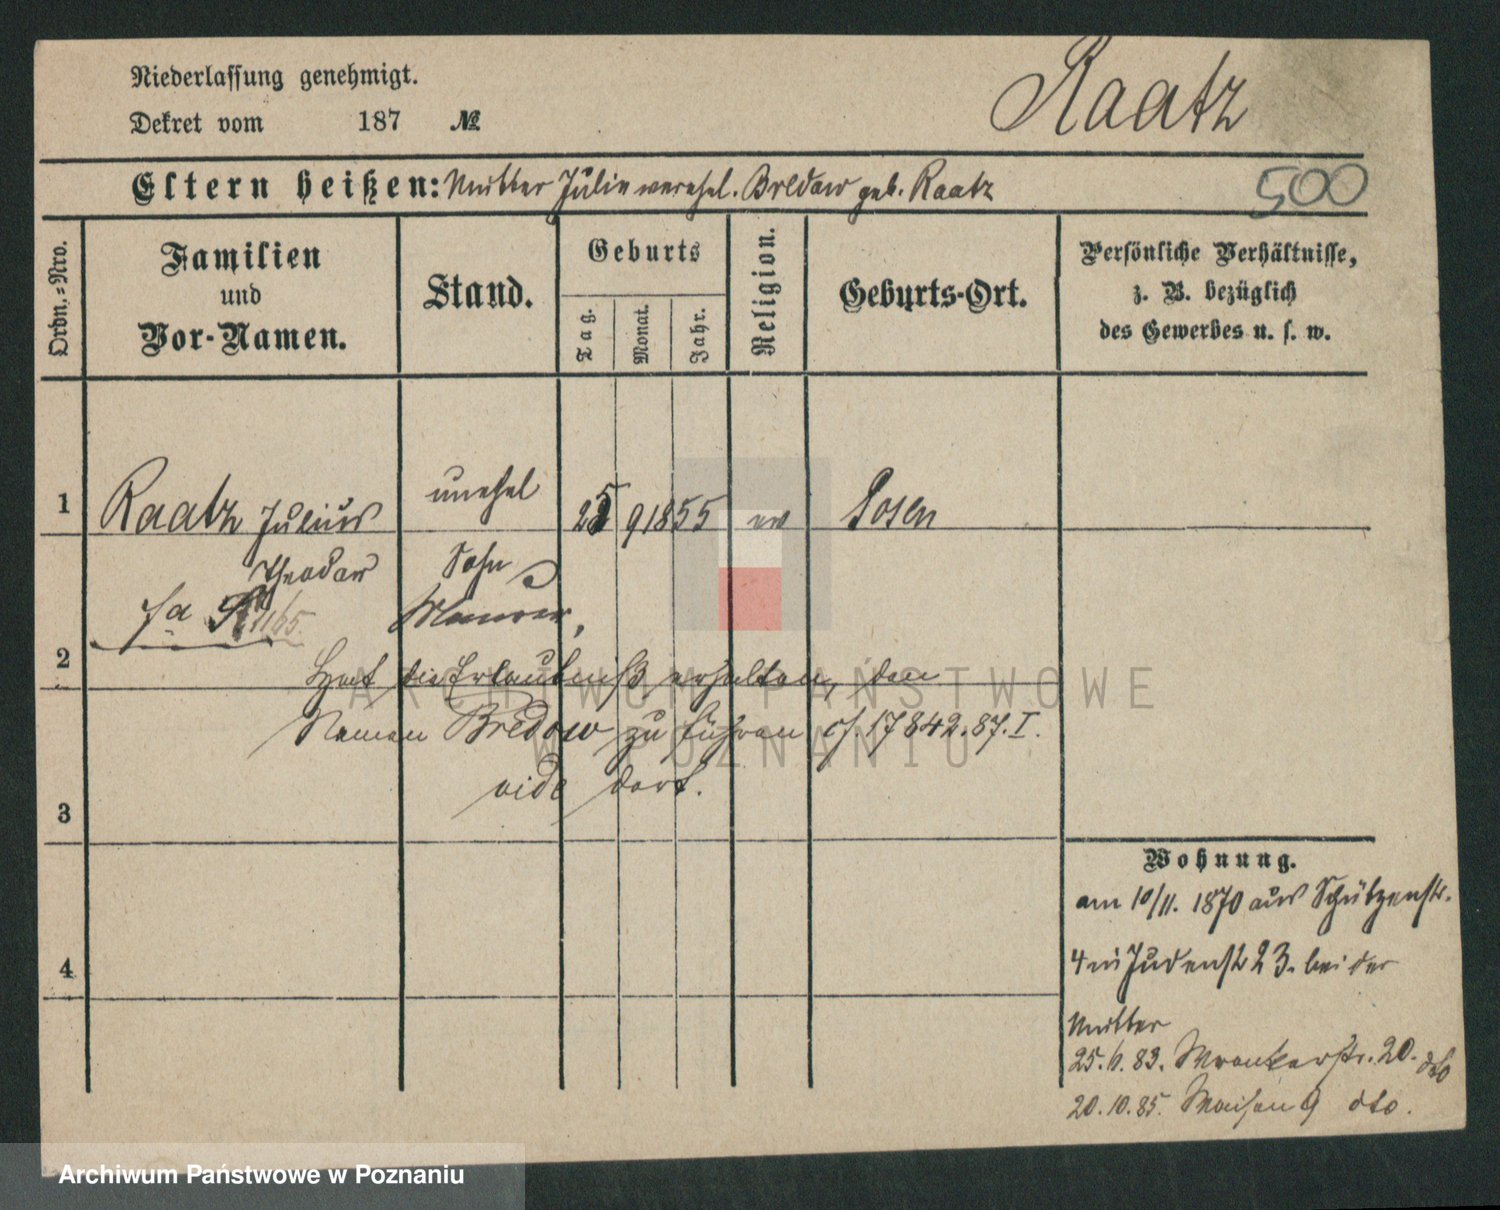 Niederlassung genehmigt.
Raatz
Dekret vom 187 №
Eltern heißen: Mutter Julie verehel. Bredow geb. Raatz
500
Ordn.-Nro.
Familien
und
Vor-Namen.
Stand.
Geburts
Tag.
Monat.
Jahr.
Religion.
Geburts-Ort.
Persönliche Verhältnisse,
z. B. bezüglich
des Gewerbes u. s. w.
1 Raatz Julius unehel 25 9 1855 ev Posen
Theodor Sohn
Maurer,
2
Hat die Erlaubniß erhalten, den
Namen Bredow zu führen cf. 17842.87.I.
vide dort.
3
Wohnung.
am 10/11. 1870 aus Schützenstr.
4
4 in Judenstr 23. bei der
Mutter
25.6.83. Wronkerstr. 20. dto
20.10.85. Waisen 9 dto.
ARCHIWUM PAŃSTWOWE
W POZNANIU
Archiwum Państwowe w Poznaniu